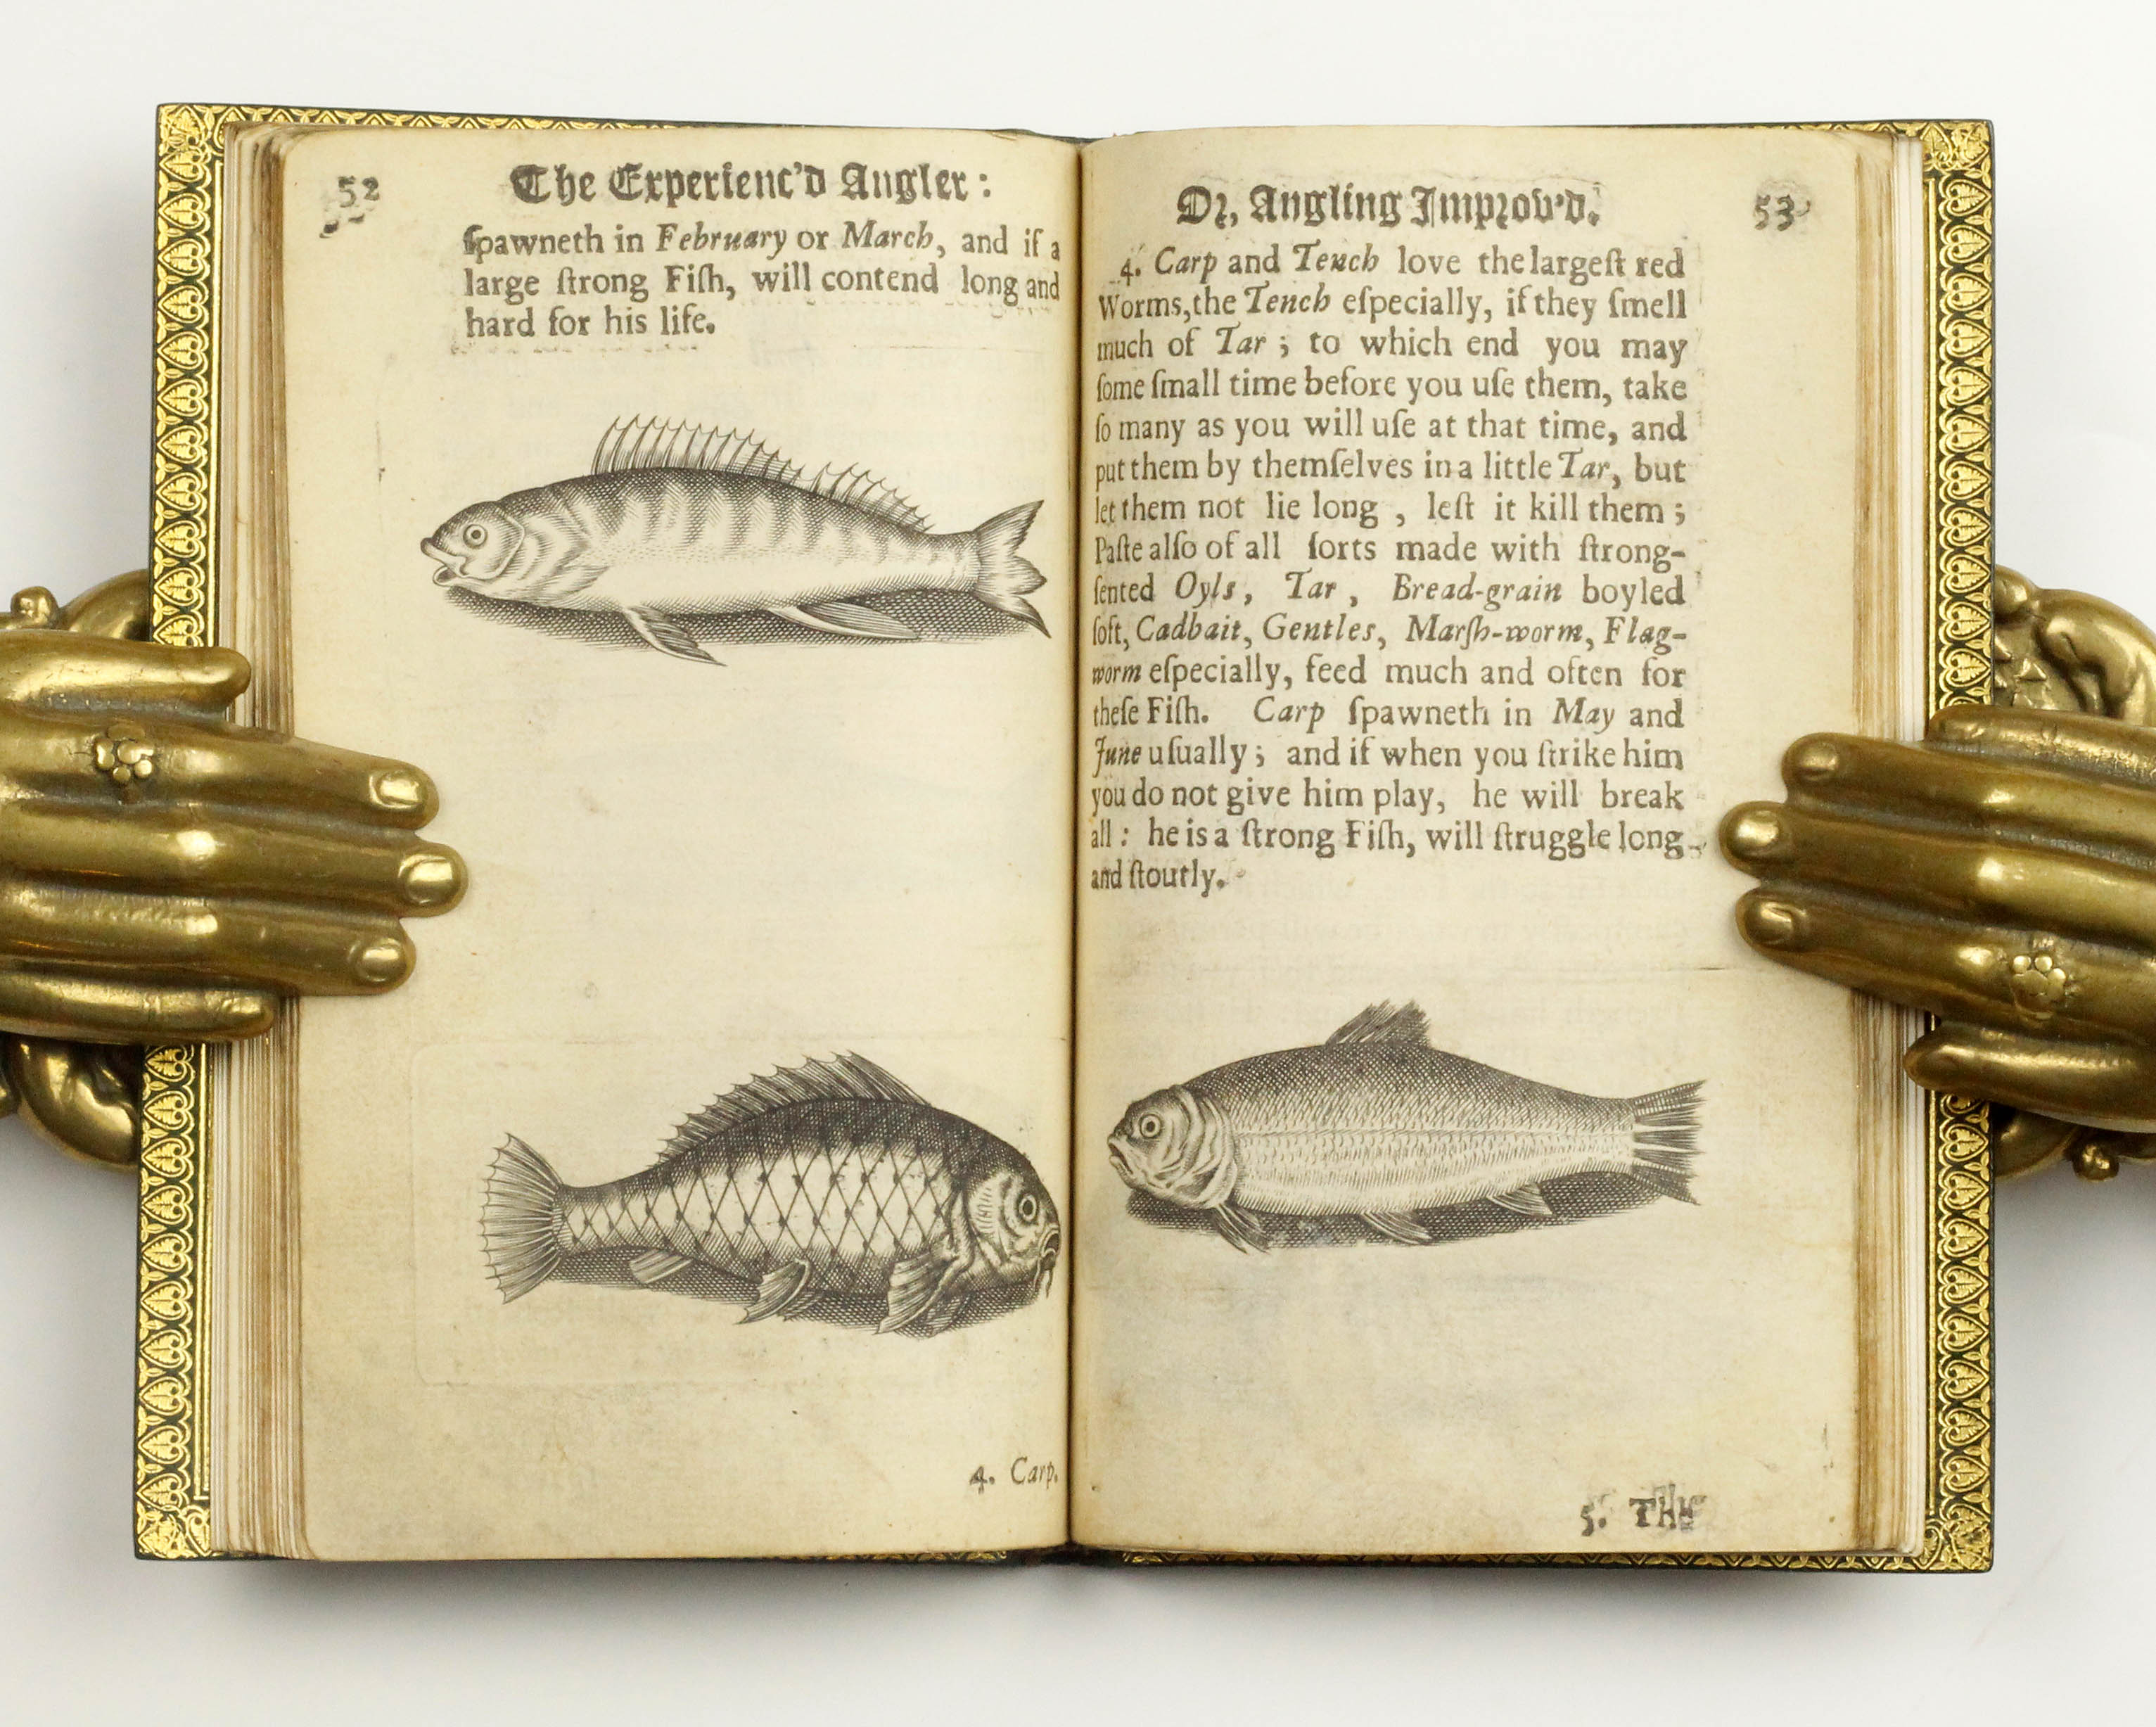 52
The Experienc'd Angler:
ſpawneth in February or March, and if a
large ſtrong Fiſh, will contend long and
hard for his life.
4. Carp.
Or, Angling Improv'd.
53
4. Carp and Tench love the largeſt red
Worms, the Tench eſpecially, if they ſmell
much of Tar; to which end you may
ſome ſmall time before you uſe them, take
ſo many as you will uſe at that time, and
put them by themſelves in a little Tar, but
let them not lie long, leſt it kill them;
Paſte alſo of all ſorts made with ſtrong-
ſented Oyls, Tar, Bread-grain boyled
ſoft, Cadbait, Gentles, Marſh-worm, Flag-
worm eſpecially, feed much and often for
theſe Fiſh. Carp ſpawneth in May and
June uſually; and if when you ſtrike him
you do not give him play, he will break
all: he is a ſtrong Fiſh, will ſtruggle long
and ſtoutly.
5. The